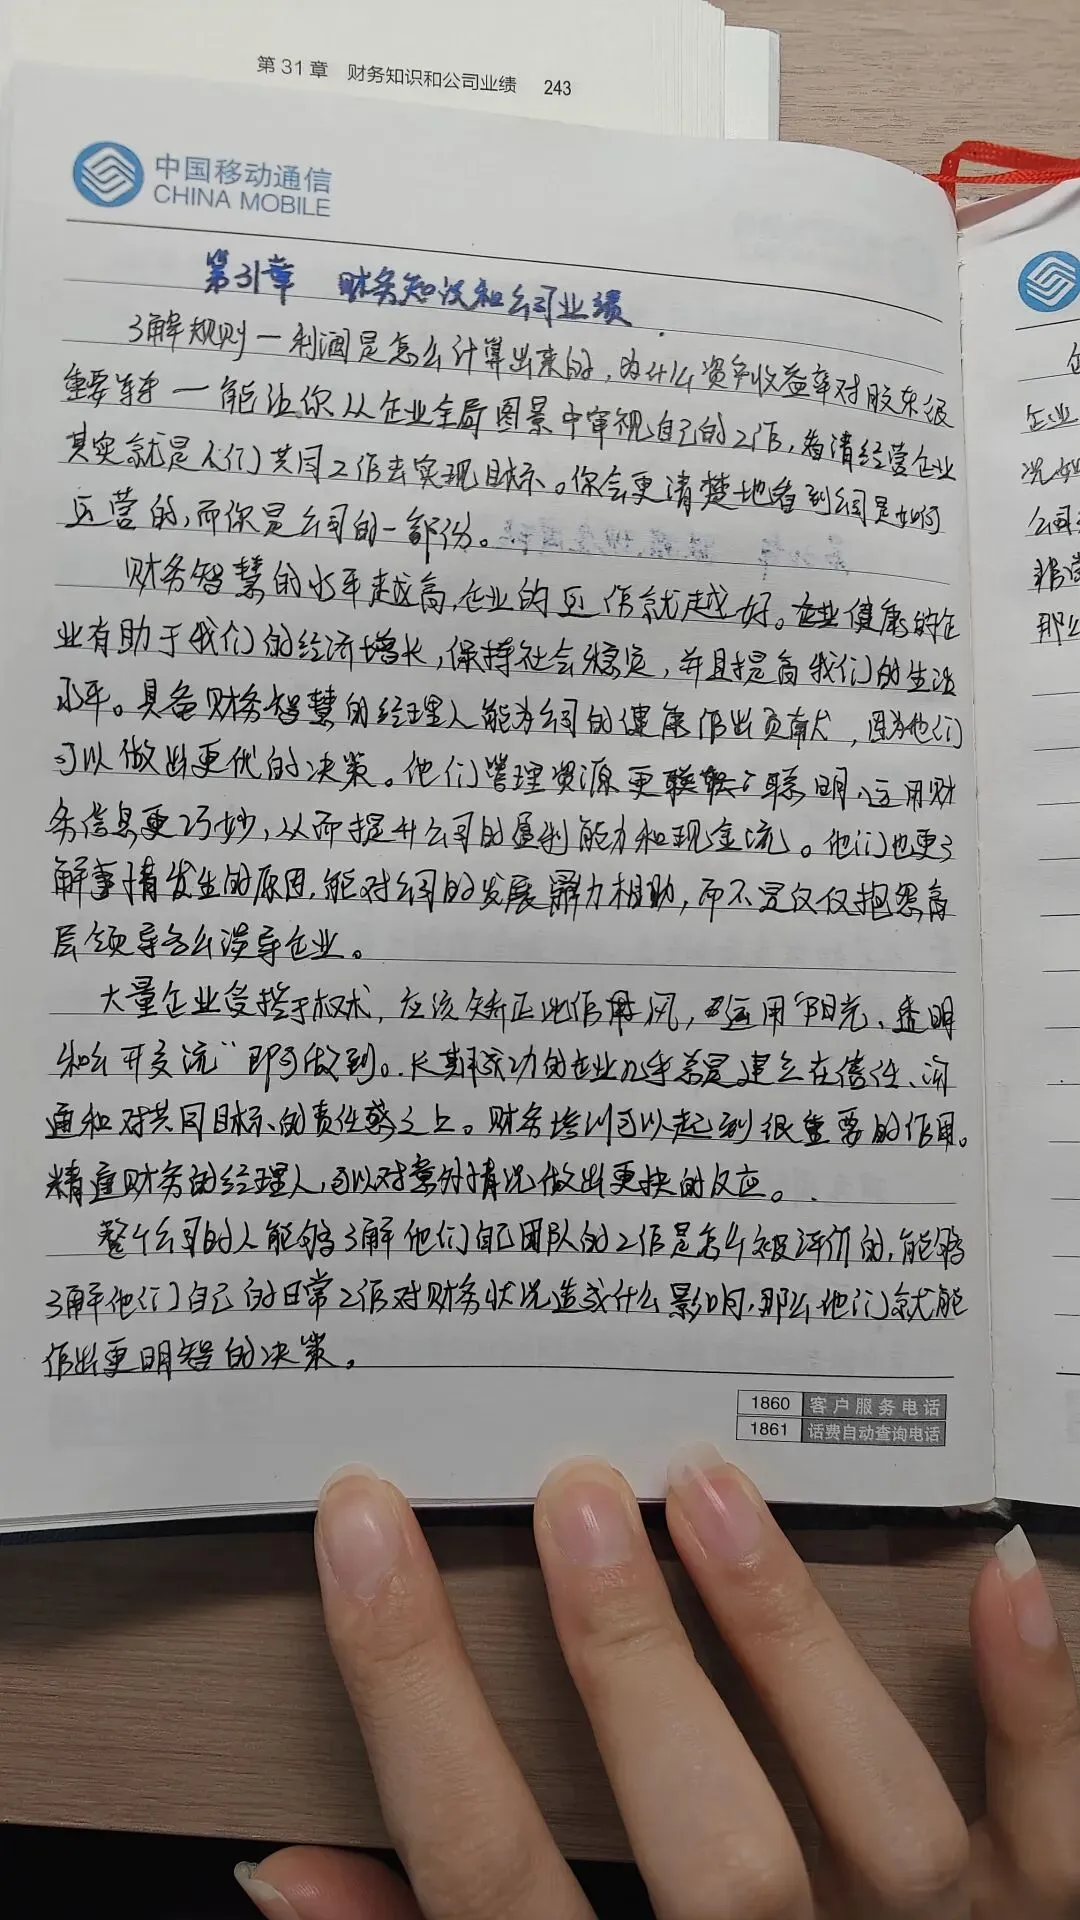 第 31 章 财务知识和公司业绩 243
中国移动通信
CHINA MOBILE
第31章 财务知识和公司业绩
了解规则一利润是怎么计算出来的，为什么资产收益率对股东很
重要等等一能让你从企业全局图景中审视自己的工作，看清经营企业
其实就是人们共同工作去实现目标。你会更清楚地看到公司是如何
运营的，而你是公司的一部份。
财务智慧的水平越高，企业的运作就越好。健康的企
业有助于我们的经济增长，保持社会稳定，并且提高我们的生活
水平。具备财务智慧的经理人能为公司的健康作出贡献，因为他们
可以做出更优的决策。他们管理资源更聪明、运用财
务信息更巧妙，从而提升公司的盈利能力和现金流。他们也更了
解事情发生的原因，能对公司的发展鼎力相助，而不是仅仅抱怨高
层领导怎么误导企业。
大量企业受控于权术，应该矫正此作风，运用“阳光、透明
和公开交流”即可做到。长期成功的企业几乎总是建立在信任、沟
通和对共同目标的责任感之上。财务培训可以起到很重要的作用。
精通财务的经理人，可以对意外情况做出更快的反应。
整个公司的人能够了解他们自己团队的工作是怎么被评价的，能够
了解他们自己的日常工作对财务状况造成什么影响，那么他们就能
作出更明智的决策。
1860 客户服务电话
1861 话费自动查询电话
中
企业
况如
公司
非常
那么